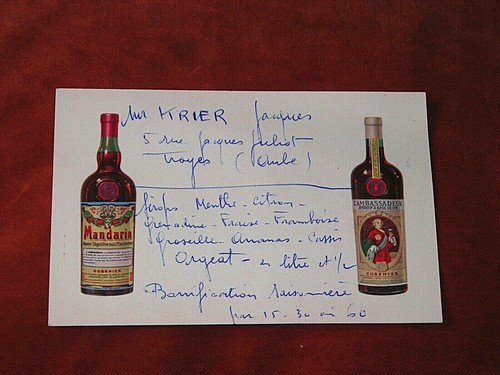 Mr KRIER Jacques
5 rue Jacques Juliot
Troyes (Aube)
Sirops Menthe - Citron -
Grenadine - Fraise - Framboise
Groseille - Ananas - Cassis
Orgeat - en litre et 1/2
Bonification Saisonnière
par 15. 30 ou 60
Mandarin
CUSENIER
L'AMBASSADEUR
CUSENIER